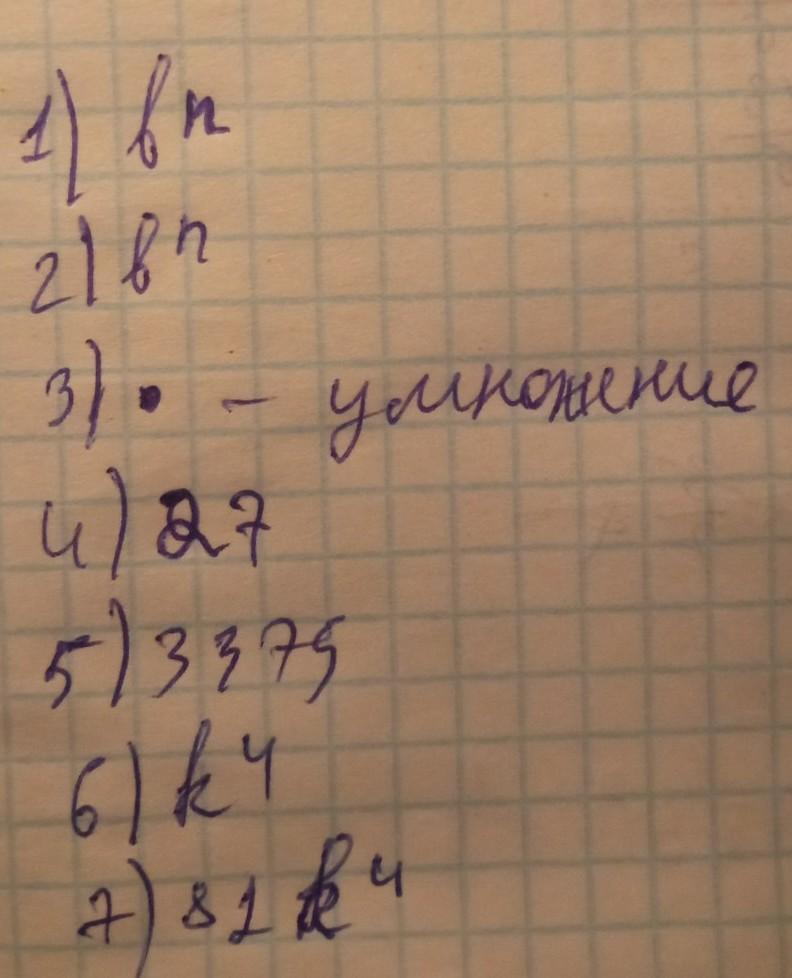 1) bⁿ
2) bⁿ
3) • - умножение
4) 27
5) 3375
6) k⁴
7) 81k⁴